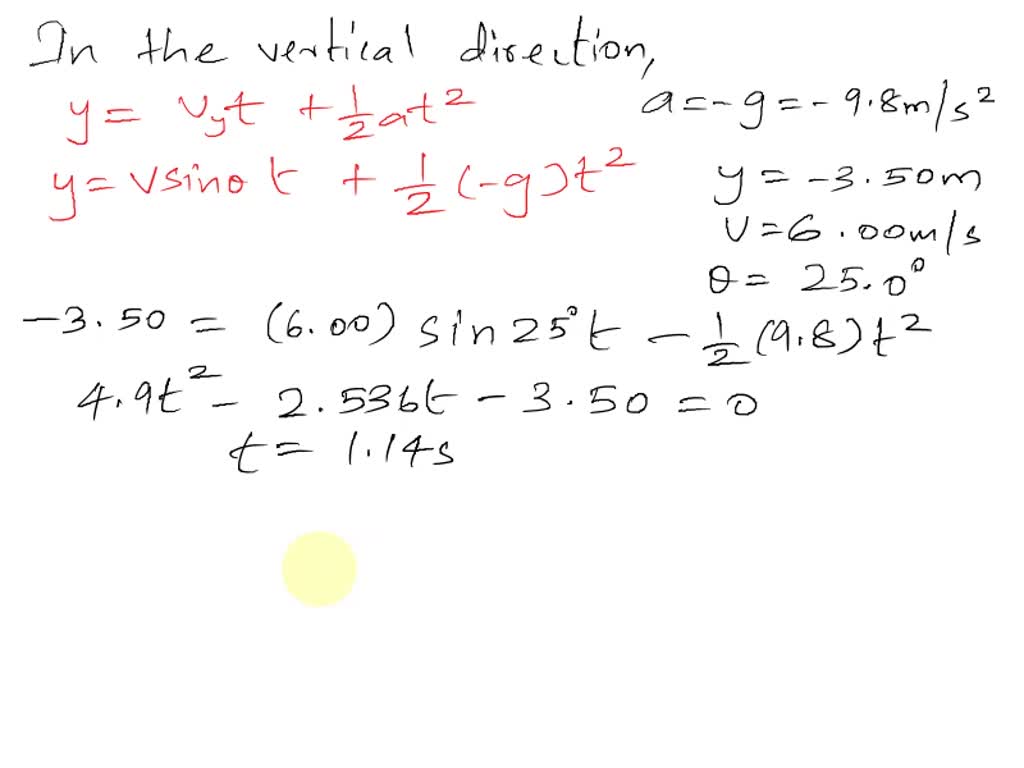 In the vertical direction,
y = vyt + 1/2 at²
a = -g = -9.8m/s²
y = vsinθ t + 1/2 (-g)t²
y = -3.50m
v = 6.00m/s
θ = 25.0°
-3.50 = (6.00) sin25°t - 1/2 (9.8)t²
4.9t² - 2.536t - 3.50 = 0
t = 1.14s